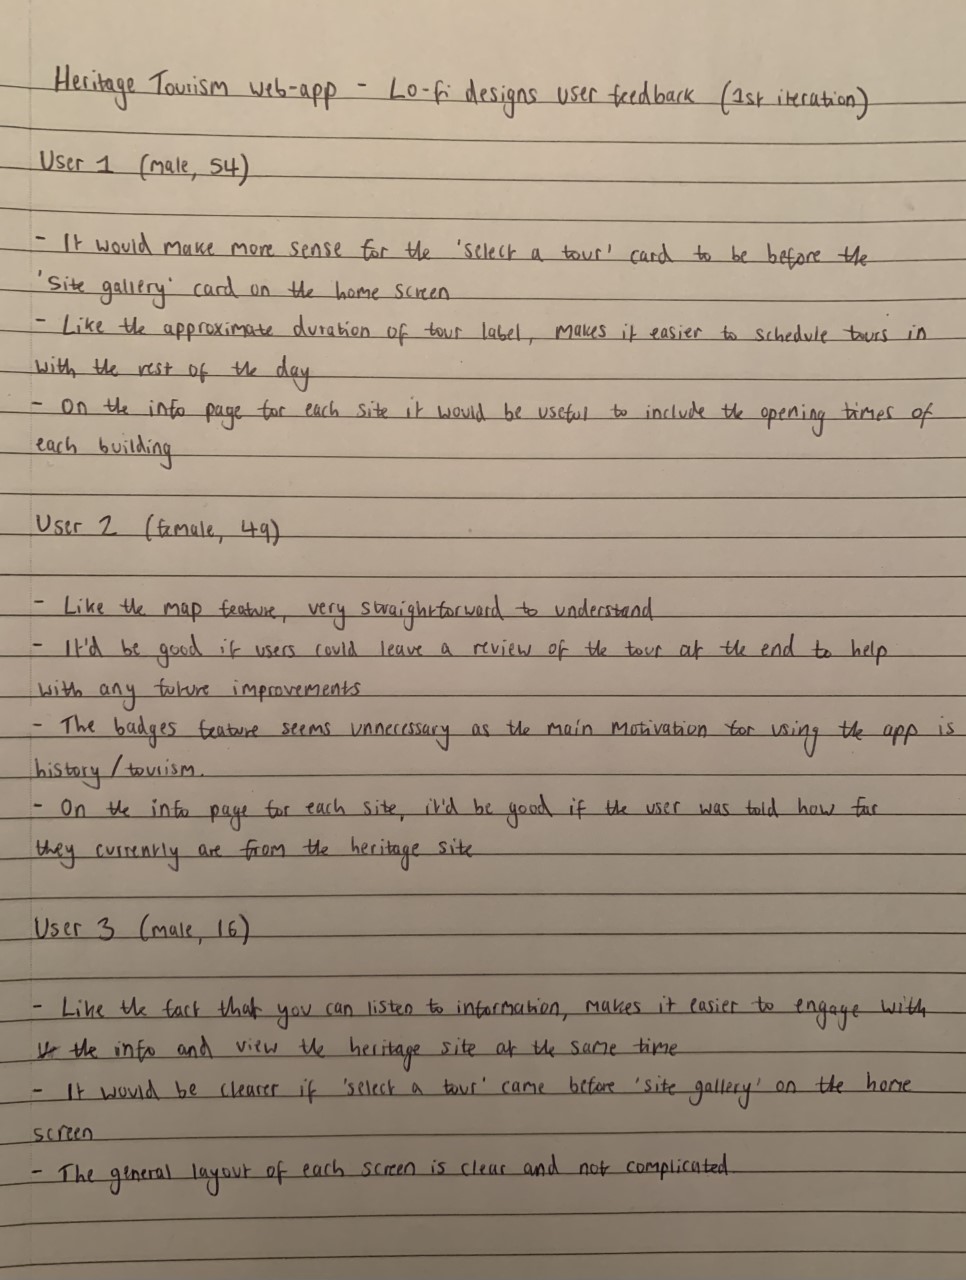 Heritage Tourism web-app - Lo-fi designs user feedback (1st iteration)
User 1 (male, 54)
- It would make more sense for the 'select a tour' card to be before the
'site gallery' card on the home screen
- Like the approximate duration of tour label, makes it easier to schedule tours in
with the rest of the day
- On the info page for each site it would be useful to include the opening times of
each building
User 2 (female, 49)
- Like the map feature, very straightforward to understand
- It'd be good if users could leave a review of the tour at the end to help
with any future improvements
- The badges feature seems unnecessary as the main motivation for using the app is
history / tourism.
- On the info page for each site, it'd be good if the user was told how far
they currently are from the heritage site
User 3 (male, 16)
- Like the fact that you can listen to information, makes it easier to engage with
the info and view the heritage site at the same time
- It would be clearer if 'select a tour' came before 'site gallery' on the home
screen
- The general layout of each screen is clear and not complicated